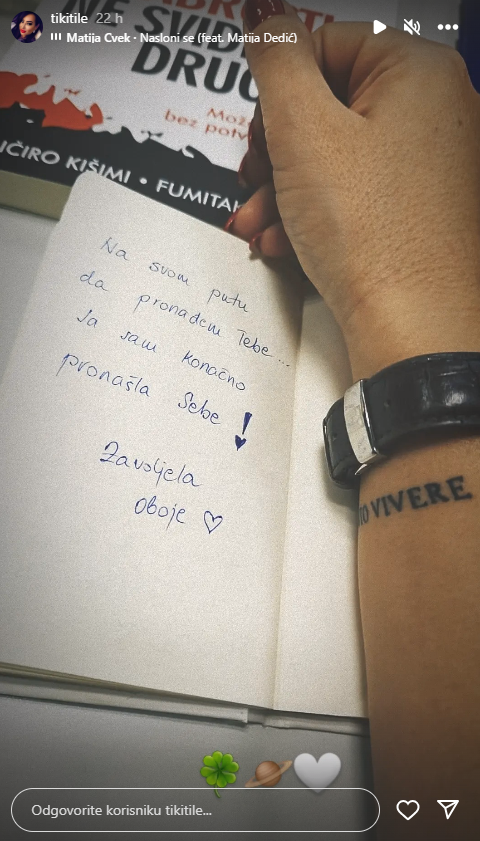 tikitile 22 h
Matija Cvek · Nasloni se (feat. Matija Dedić)
NE SVIĐA
DRUG
Mož
bez potv
IČIRO KIŠIMI • FUMITAK
Na svom putu
da pronađem Tebe...
Ja sam konačno
pronašla Sebe!
Zavoljela
oboje ♡
TO VIVERE
Odgovorite korisniku tikitile...